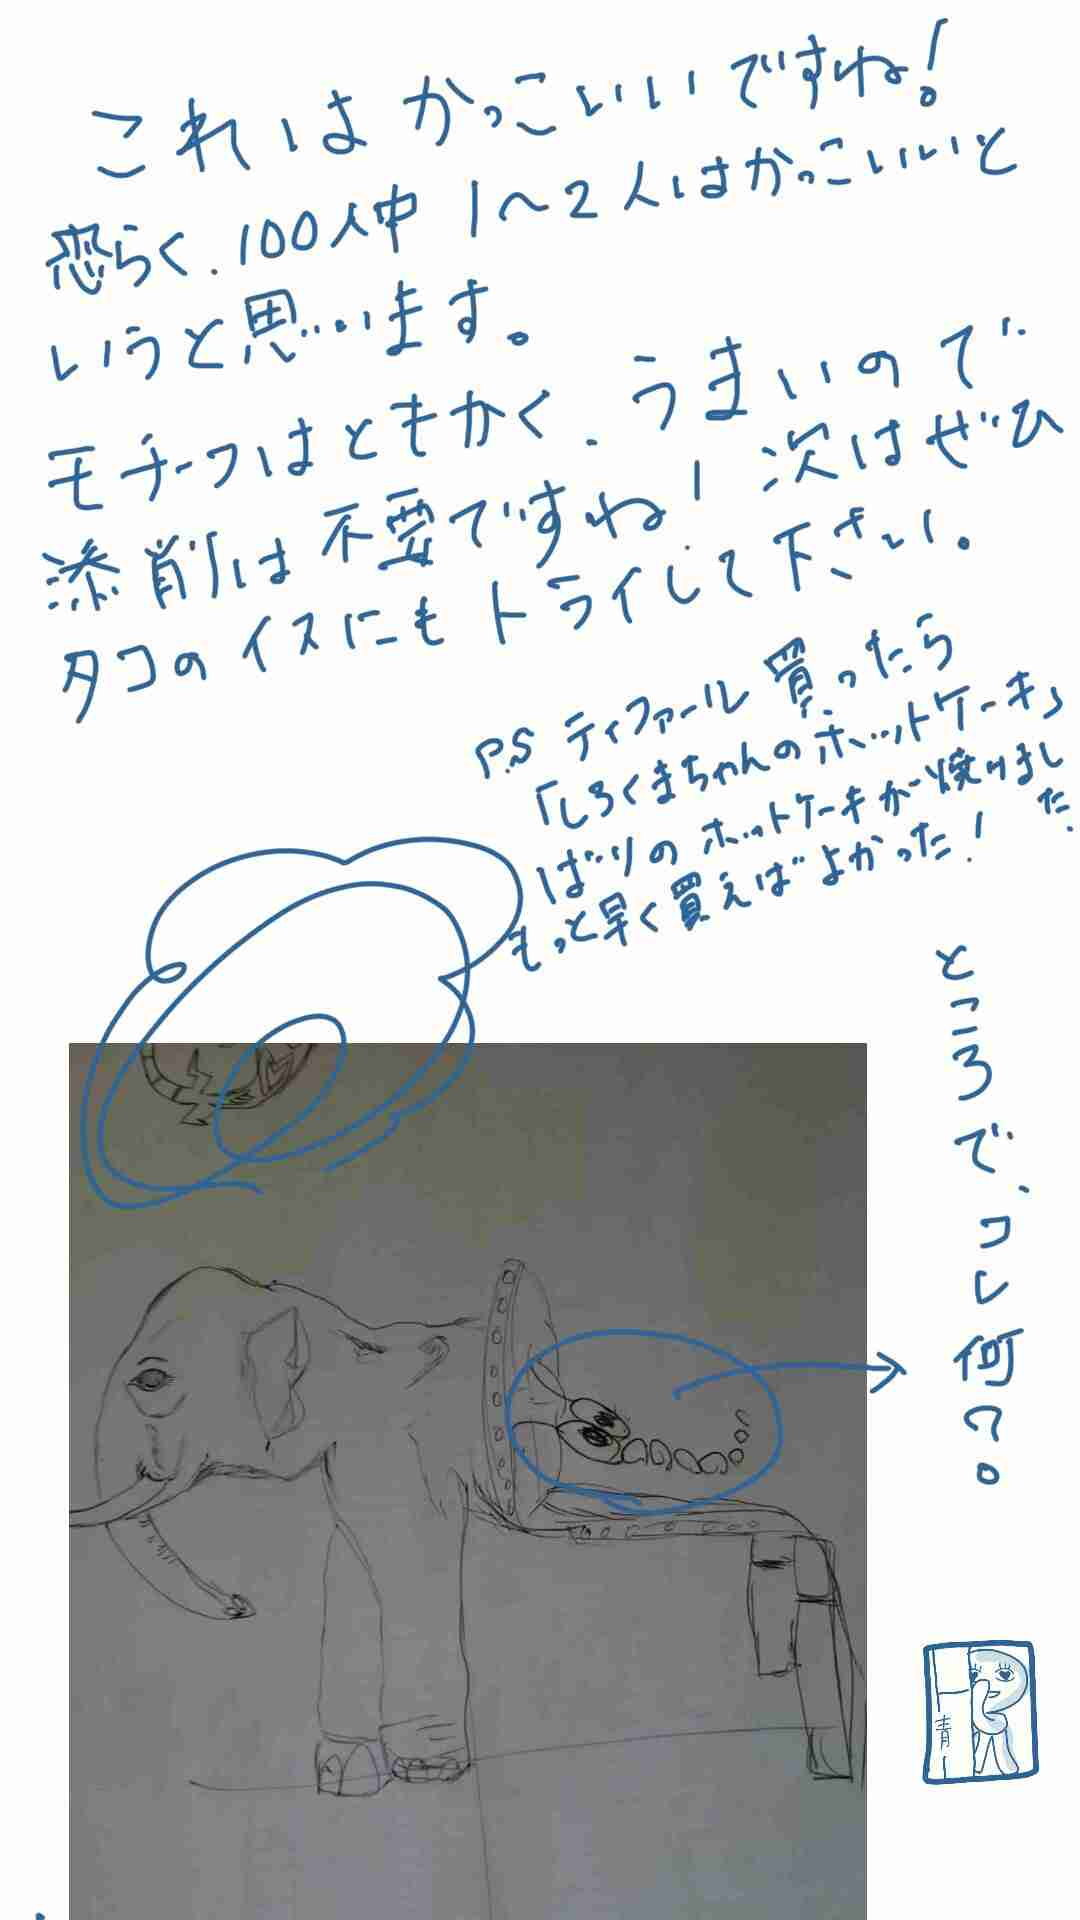 これはかっこいいですね！
恐らく、100人中 1〜2人はかっこいいと
いうと思います。
モチーフはともかく、うまいので
添削は不要ですね！次はぜひ
タコのイスにもトライして下さい。
P.S ティファール買ったら
「しろくまちゃんのホットケーキ」
ばりのホットケーキが焼けまし
た。
もっと早く買えばよかった！
ところで、コレ何？。
青